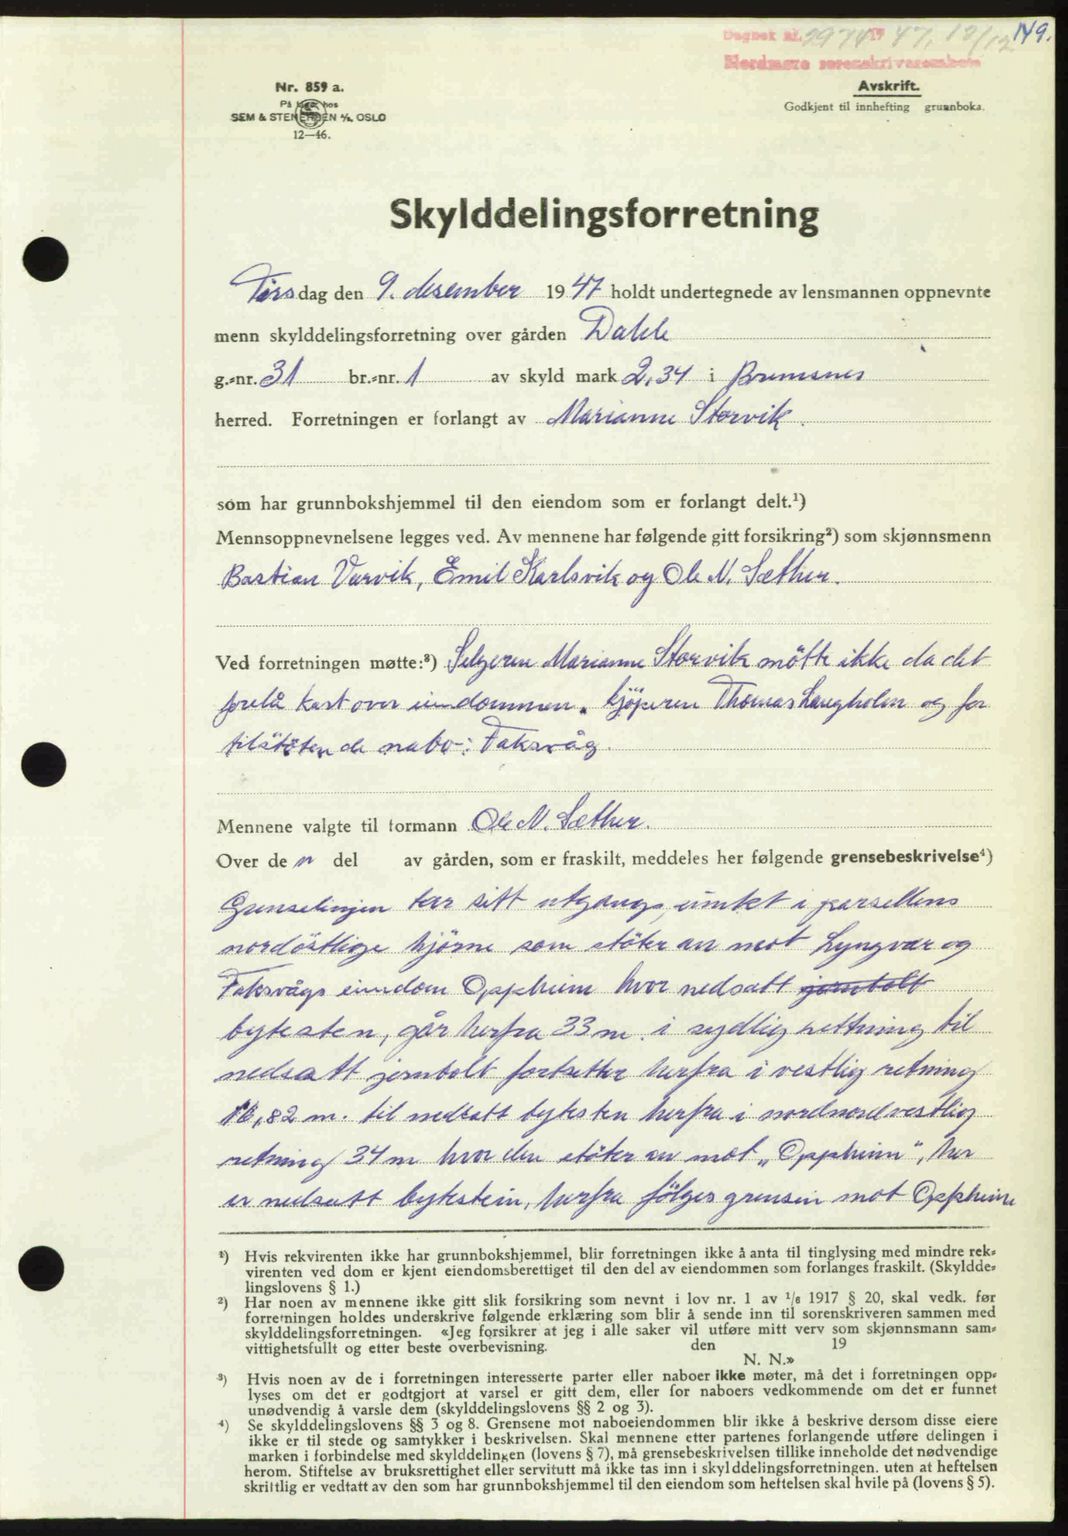 Dagbok nr. 2974 19 47, 12/12 149.
Nordmøre sorenskriverembete
Nr. 859 a.
På lager hos
SEM & STENERSEN A/S, OSLO
12—46.
Avskrift.
Godkjent til innhefting grunnboka.
Skylddelingsforretning
Tirsdag den 9. desember 1947 holdt undertegnede av lensmannen oppnevnte
menn skylddelingsforretning over gården Dalle
g.-nr. 31 br.-nr. 1 av skyld mark 2,34 i Bremsnes
herred. Forretningen er forlangt av Marianne Storvik.
som har grunnbokshjemmel til den eiendom som er forlangt delt.¹)
Mennsoppnevnelsene legges ved. Av mennene har følgende gitt forsikring²) som skjønnsmenn
Bastian Varvik, Emil Karlsvik og Ole N. Sæther.
Ved forretningen møtte:³) Selgeren Marianne Storvik mötte ikke da det
forelå kart over eiendommen. kjöperen Thomas Langholm og for
tilstötende nabo: Faksvåg.
Mennene valgte til formann Ole N. Sæther.
Over den del av gården, som er fraskilt, meddeles her følgende grensebeskrivelse⁴)
Grenselinjen tar sitt utgangspunkt i parsellens
nordöstlige hjörne som stöter an mot Lyngvær og
Faksvågs eiendom Oppheim hvor nedsatt jernbolt
bytesten, går herfra 33 m. i sydlig rettning til
nedsatt jernbolt fortsetter herfra i vestlig retning
16,82 m. til nedsatt bytesten herfra i nordnordvestlig
retning 34 m hvor den stöter an mot „Oppheim", her
er nedsatt bytestein, herfra fölger grensen mot Oppheim
¹) Hvis rekvirenten ikke har grunnbokshjemmel, blir forretningen ikke å anta til tinglysing med mindre rek-
virenten ved dom er kjent eiendomsberettiget til den del av eiendommen som forlanges fraskilt. (Skyldde-
lingslovens § 1.)
²) Har noen av mennene ikke gitt slik forsikring som nevnt i lov nr. 1 av 1/6 1917 § 20, skal vedk. før
forretningen holdes underskrive følgende erklæring som blir å sende inn til sorenskriveren sammen med
skylddelingsforretningen. «Jeg forsikrer at jeg i alle saker vil utføre mitt verv som skjønnsmann sam-
vittighetsfullt og etter beste overbevisning. den 19
N. N.»
³) Hvis noen av de i forretningen interesserte parter eller naboer ikke møter, må det i forretningen opp-
lyses om det er godtgjort at varsel er gitt dem, eller for naboers vedkommende om det er funnet
unødvendig å varsle dem (skylddelingslovens §§ 2 og 3).
⁴) Se skylddelingslovens §§ 3 og 8. Grensene mot naboeiendommen blir ikke å beskrive dersom disse eiere
ikke er til stede og samtykker i beskrivelsen. Skal mennene etter partenes forlangende utføre delingen i
marken i forbindelse med skylddelingen (lovens § 7), må grensebeskrivelsen tillike inneholde det nødvendige
herom. Stiftelse av bruksrettighet eller servitutt må ikke tas inn i skylddelingsforretningen, uten at heftelsen
skriftlig er vedtatt av den som har grunnbokshjemmel til den eiendom som heftelsen skal hvile på (lovens § 5).